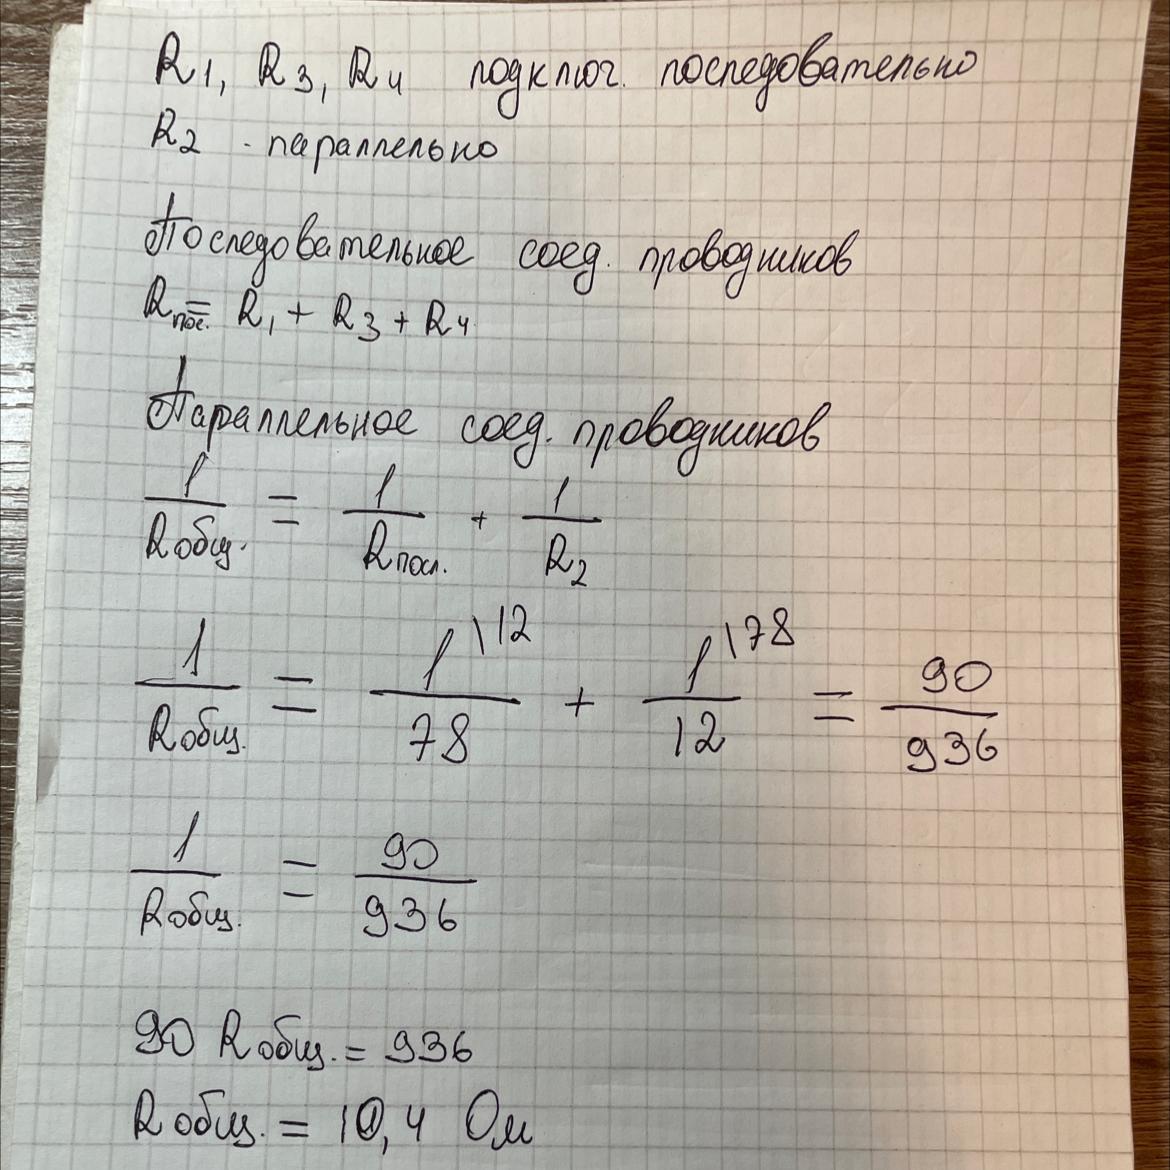 R1, R3, R4 подключ. последовательно
R2 - параллельно
Последовательное соед. проводников
Rпос. = R1 + R3 + R4
Параллельное соед. проводников
1/Rобщ. = 1/Rпосл. + 1/R2
1/Rобщ. = 1\12/78 + 1\78/12 = 90/936
1/Rобщ. = 90/936
90 Rобщ. = 936
Rобщ. = 10,4 Ом